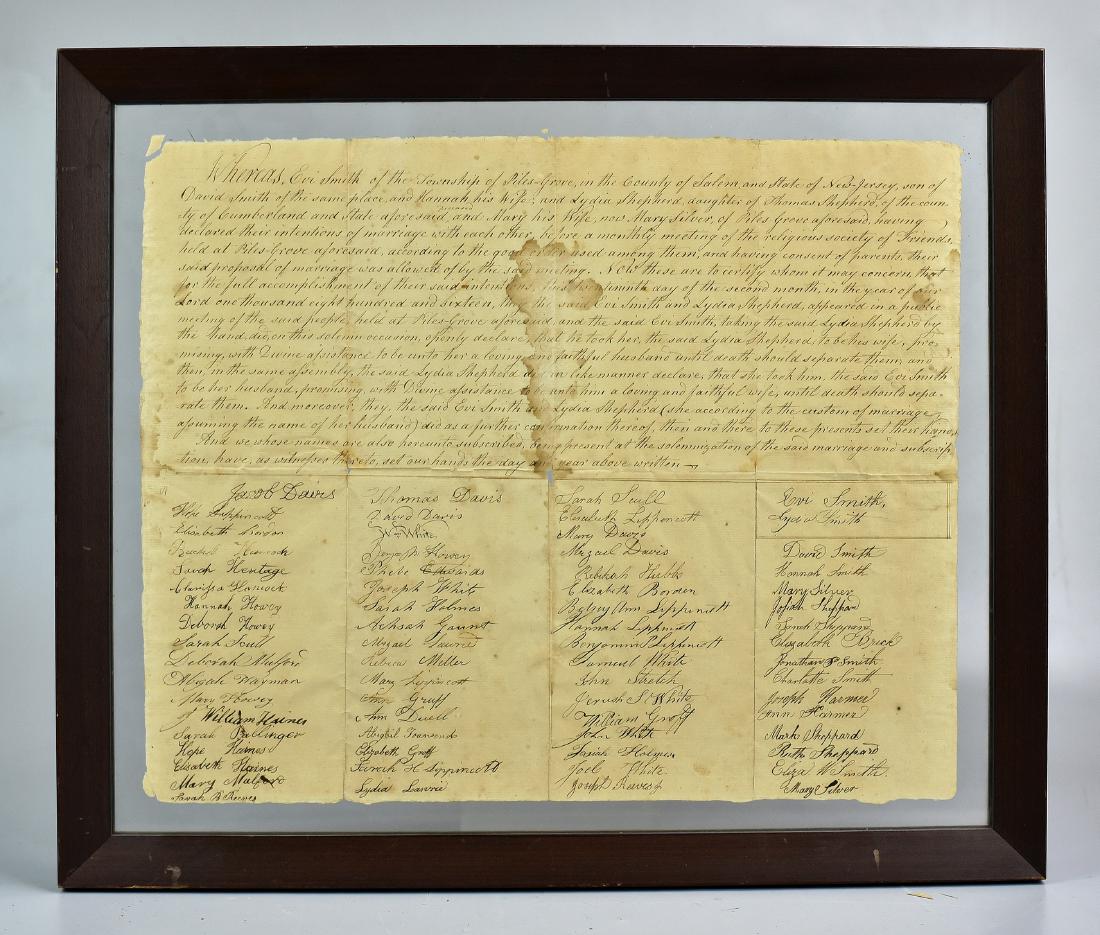 Whereas, Evi Smith of the Township of Piles-Grove, in the County of Salem, and State of New-Jersey, son of
David Smith of the same place, and Hannah, his wife; and Lydia Shepherd, daughter of Thomas Shepherd, of the coun-
ty of Cumberland and State aforesaid, and Mary his Wife, now Mary Silver, of Piles Grove aforesaid, having
declared their intentions of marriage with each other, before a monthly meeting of the religious society of Friends,
held at Piles-Grove aforesaid, according to the good order used among them, and having consent of parents, their
said proposal of marriage was allowed of by the said meeting. Now these are to certify whom it may concern, that
for the full accomplishment of their said intentions, this day of the second month, in the year of our
Lord one thousand eight hundred and sixteen, they the said Evi Smith and Lydia Shepherd, appeared in a public
meeting of the said people, held at Piles-Grove aforesaid, and the said Evi Smith, taking the said Lydia Shepherd by
the hand, did, on this solemn occasion, openly declare, that he took her, the said Lydia Shepherd, to be his wife, pro-
mising, with Divine assistance to be unto her a loving and faithful husband until death should separate them; and
then, in the same assembly, the said Lydia Shepherd did in like manner declare, that she took him, the said Evi Smith
to be her husband, promising, with Divine assistance to be unto him a loving and faithful wife, until death should sepa-
rate them. And moreover, they, the said Evi Smith and Lydia Shepherd (she according to the custom of marriage,
assuming the name of her husband) did as a further confirmation thereof, then and there to these presents set their hands.
And we whose names are also hereunto subscribed, being present at the solemnization of the said marriage and subscrip-
tion, have, as witnesses thereto, set our hands the day and year above written
Jacob Davis
Hope Lippincott
Elisabeth
Sarah Heritage
Clarissa Hancock
Hannah Howey
Deborah Howey
Sarah Scull
Deborah Mulford
Abigah Wayman
Mary Howey
William Haines
Sarah Ballinger
Hope Haines
Elisabeth Haines
Mary Mulford
Sarah B Reeves
Thomas Davis
David Davis
Wm White
Joseph Howey
Phebe Edwards
Joseph White
Sarah Holmes
Achsah Gaunt
Abigail Lawrie
Rebecca Miller
Mary Lippincott
Ann Groff
Ann Duell
Abigbil Townsend
Elizabeth Groff
H Lippincott
Lydia Lawrie
Sarah Scull
Elizabeth Lippincott
Mary Davis
Davis
Rebekah Hubbs
Elizabeth Borden
Betsey Ann Lippincott
Hannah Lippincott
Benjamin Lippincott
Samuel White
John Stretch
White
William Groff
John White
Josiah Holmes
Joel White
Joseph Reeves
Evi Smith,
Lydia Smith
David Smith
Hannah Smith
Mary Silver
Josiah Sheppard
Sarah Sheppard
Elizabeth Brick
Jonathan Smith
Charlotte Smith
Joseph Harmer
Ann Harmer
Mark Sheppard
Ruth Sheppard
Eliza W Smith
Mary Silver